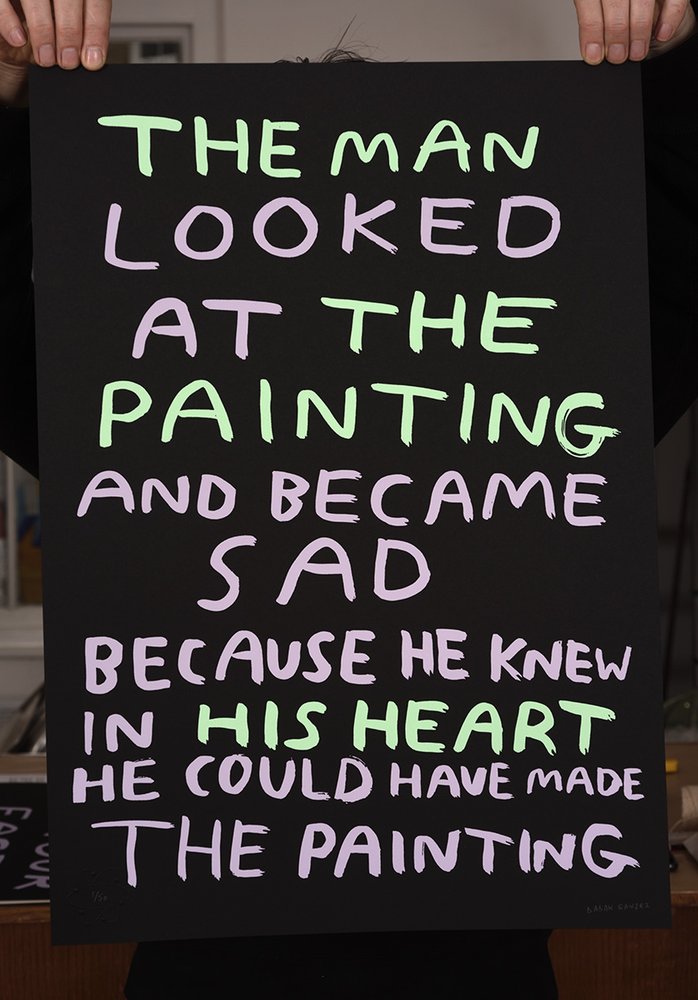 THE MAN
LOOKED
AT THE
PAINTING
AND BECAME
SAD
BECAUSE HE KNEW
IN HIS HEART
HE COULD HAVE MADE
THE PAINTING